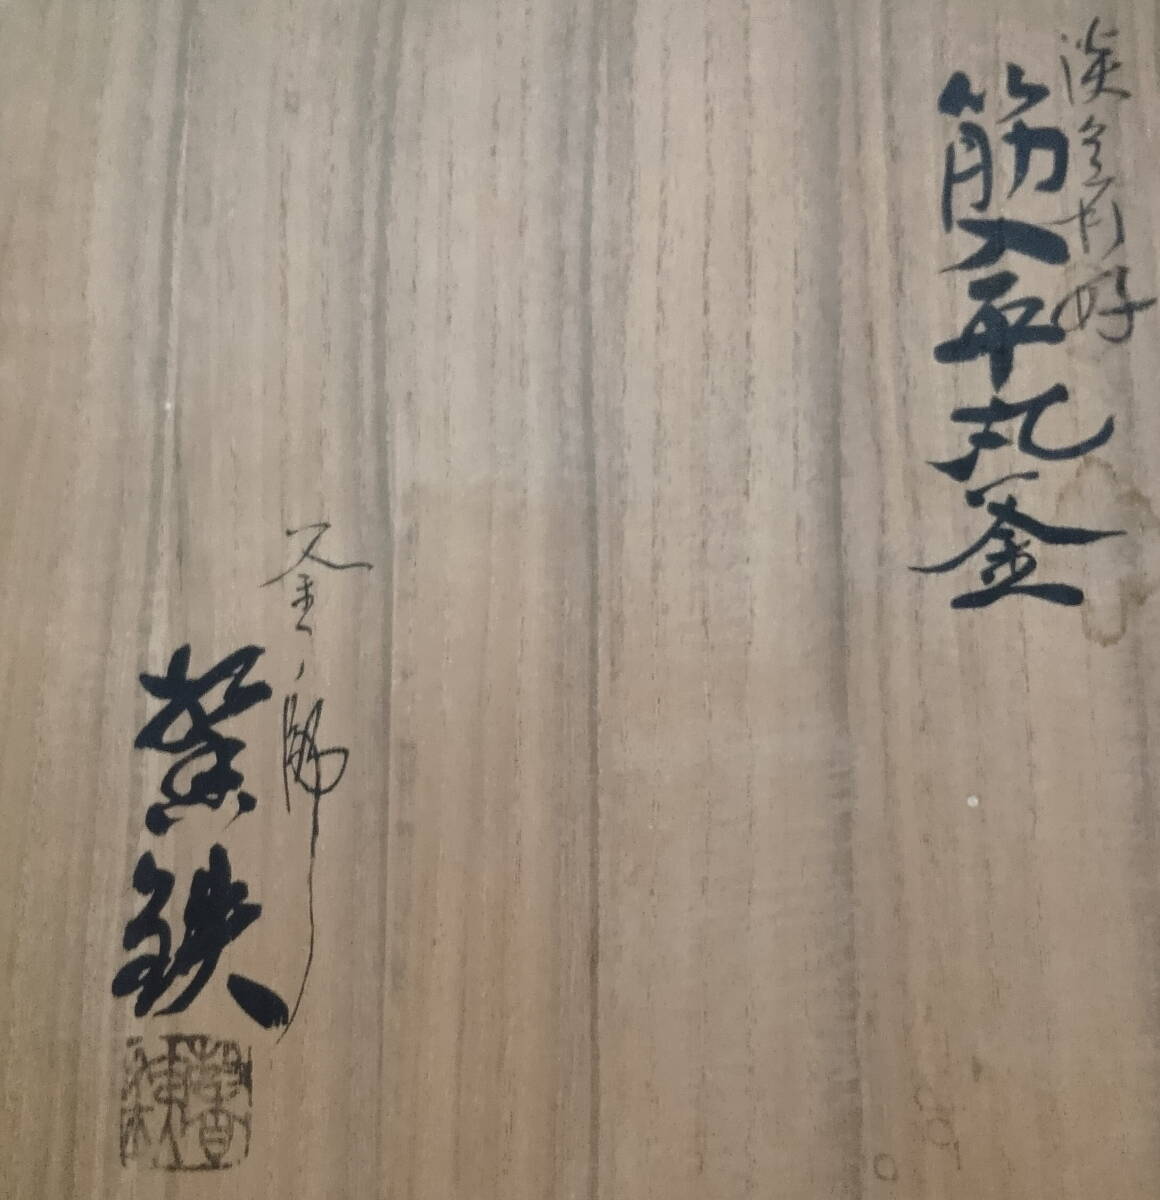 淡々斎好
筋入平丸釜
釜師
紫鉄